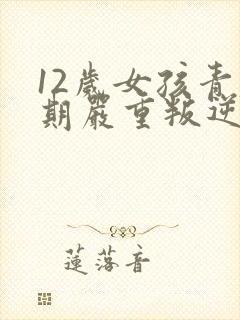 12歲女孩青
期嚴重叛逆
蓮落音